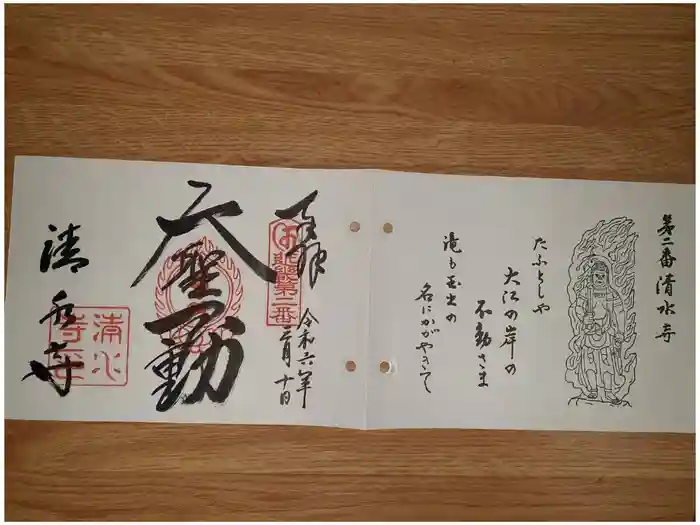 第二番 清水寺
たふとしや
大江の岸の
不動さま
滝も玉出の
名にかがやきて
奉拝
令和六年
三月十日
龍第二番
大聖
不動
清水寺
清水
寺印